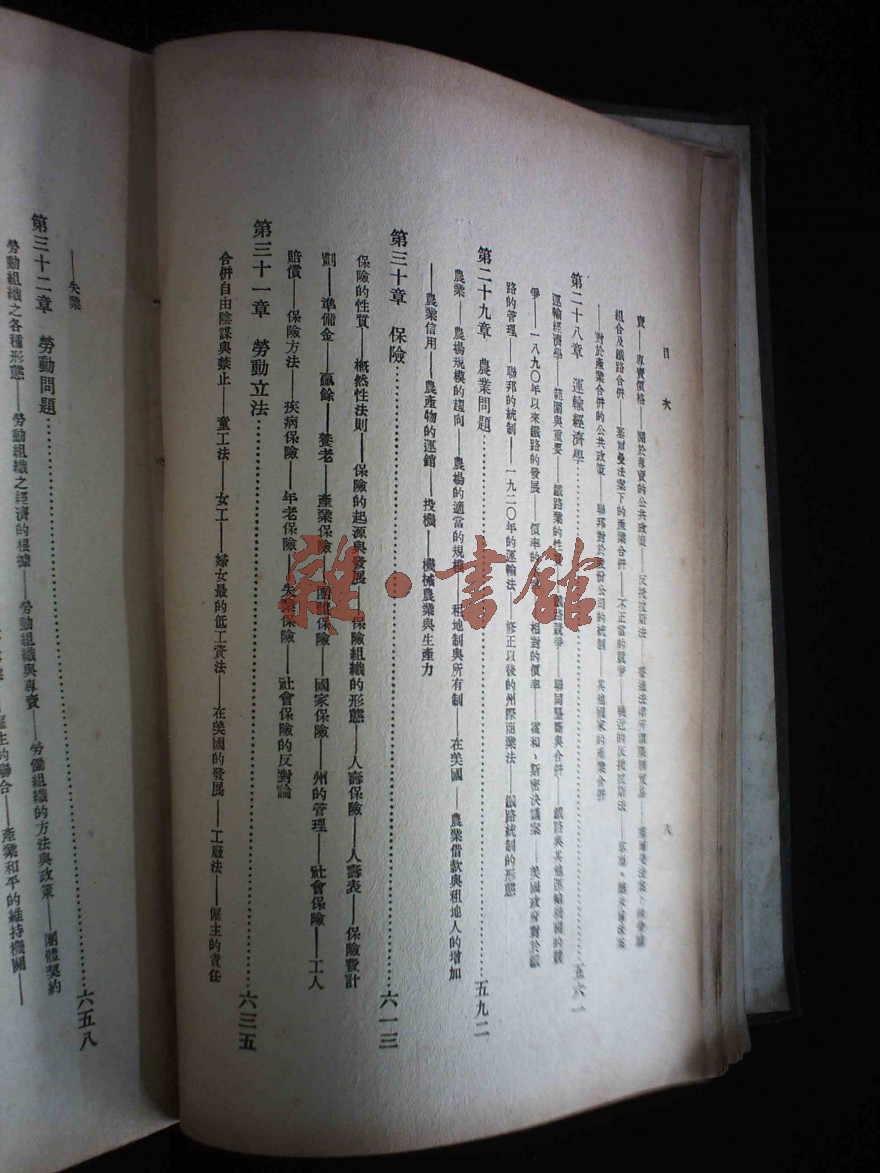 目次
八
賣——專賣價格——關於專賣的公共政策——反托拉斯法
組合及鐵路合併——塞爾曼法案下的產業合併——不正當的競爭——最近的反托拉斯法
——對於產業合併的公共政策——聯邦對於股份公司的統制——其他國家的產業合併
第二十八章 運輸經濟學 五六一
運輸經濟學——範圍與重要——鐵路業的性 鐵路競爭——聯同壟斷與合併——鐵路與其他運輸機關的競
爭——一八九〇年以來鐵路的發展——價率的 相對的價率——富和、斯密決議案——美國政府對於鐵
路的管理——聯邦的統制——一九二〇年的運輸法——修正以後的州際商業法——鐵路統制的形態
第二十九章 農業問題 五九二
農業——農場規模的趨向——農場的適當的規模——租地制與所有制——在美國——農業借款與租地人的增加
——農業信用——農產物的運銷——投機——機械農業與生產力
第三十章 保險 六一三
保險的性質——概然性法則——保險的起源與發展——保險組織的形態——人壽保險——人壽表——保險費計
劃——準備金——贏餘——養老——產業保險——團體保險——國家保險——州的管理——社會保險——工人
賠償——保險方法——疾病保險——年老保險——失業保險——社會保險的反對論
第三十一章 勞動立法 六三五
合併自由陰謀與禁止——童工法——女工——婦女最的低工資法——在美國的發展——工廠法——僱主的責任
——失業
第三十二章 勞動問題 六五八
勞動組織之各種形態——勞動組織之經濟的根據——勞動組織與專賣——勞働組織的方法與政策——團體契約
僱主的聯合——產業和平的維持機關——
雜·書館